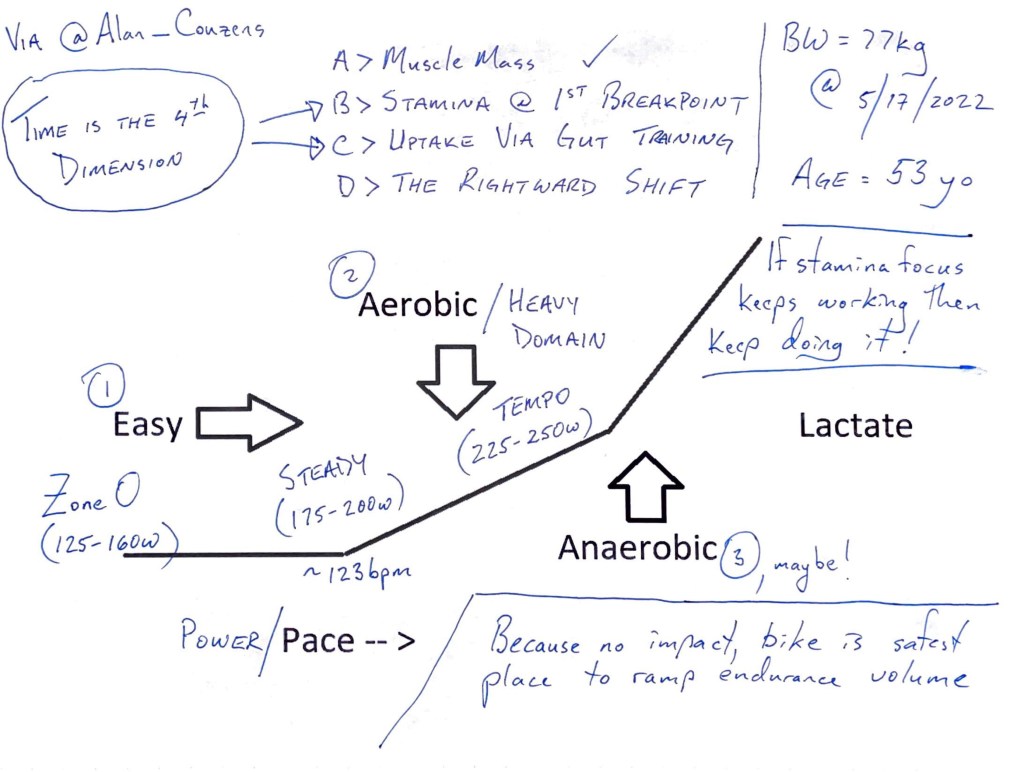 VIA @Alan_Couzens
TIME IS THE 4TH
DIMENSION
A > MUSCLE MASS ✓
B > STAMINA @ 1ST BREAKPOINT
C > UPTAKE VIA GUT TRAINING
D > THE RIGHTWARD SHIFT
BW = 77kg
@ 5/17/2022
AGE = 53 yo
If stamina focus
keeps working then
keep doing it!
2
Aerobic / HEAVY
DOMAIN
1
Easy
TEMPO
(225-250w)
STEADY
(175-200w)
Zone 0
(125-160w)
~123bpm
Lactate
Anaerobic 3, maybe!
POWER/Pace -- >
Because no impact, bike is safest
place to ramp endurance volume